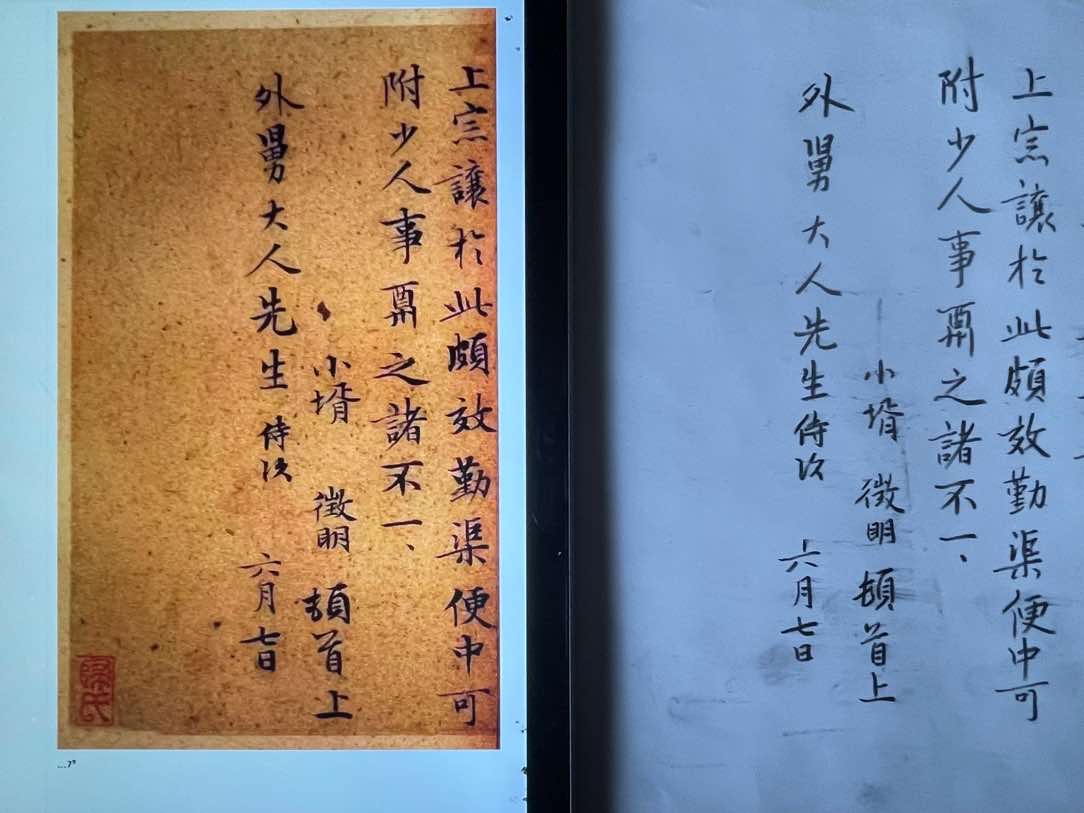 上宗讓於此頗效勤渠便中可
附少人事鼏之諸不一、
小壻 徵明 頓首上
外舅大人先生 侍次
六月七日
上宗讓於此頗效勤渠便中可
附少人事鼏之諸不一、
小壻 徵明 頓首上
外舅大人先生 侍次
六月七日